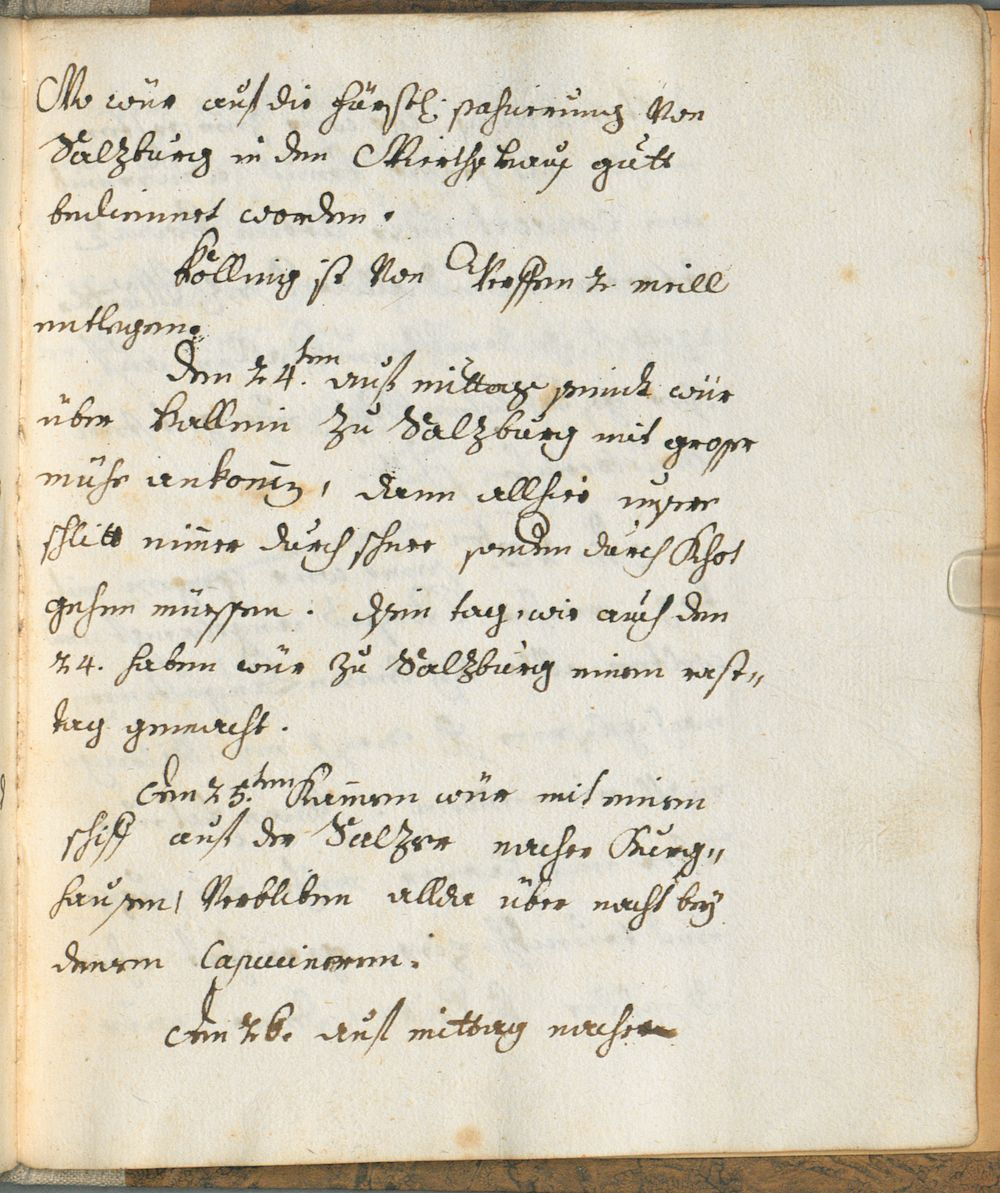 Wo wür auf die fürstl: pahsierung Von
Salzburg in den Wirthshaus gutt
bedienet worden.
Kolling ist Von Werffen 2 meill
entlegen.
Den 24.ten auf mittags seindt wür
über Hallein zu Salzburg mit groser
mühe ankom̄en, dann allhier unsere
schlitt nim̄er durch schnee sonder durch Khot
gehen müessen. disen tag wie auch den
24. haben wür zu Salzburg einen rast„
tag gemacht.
Den 25.ten Kam̄en wür mit einem
schiff auf der Salzer nacher Burg„
hausen, Verbliben allda über nacht bey
denen Capucineren.
Den 26. auf mittag nacher